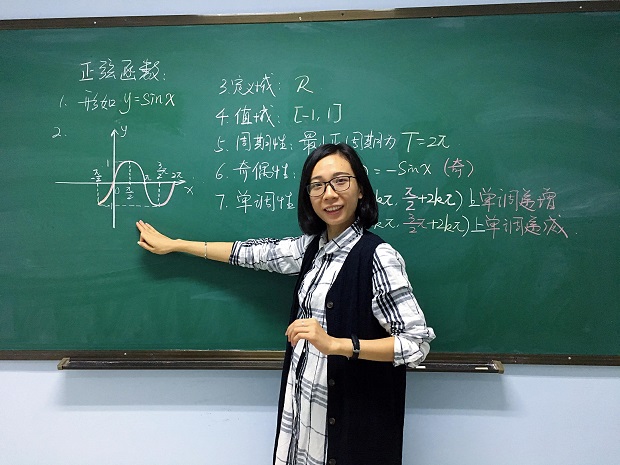 正弦函数:
1. 形如 y=sinx
2.
y
1
-π/2 0 π/2 π 3π/2 2π x
3 定义域: R
4 值域: [-1, 1]
5. 周期性: 最 正周期为 T=2π
6. 奇偶性: ) = -sinx (奇)
7. 单调性 kπ, π/2+2kπ) 上单调递增
kπ, 3π/2+2kπ) 上单调递减.